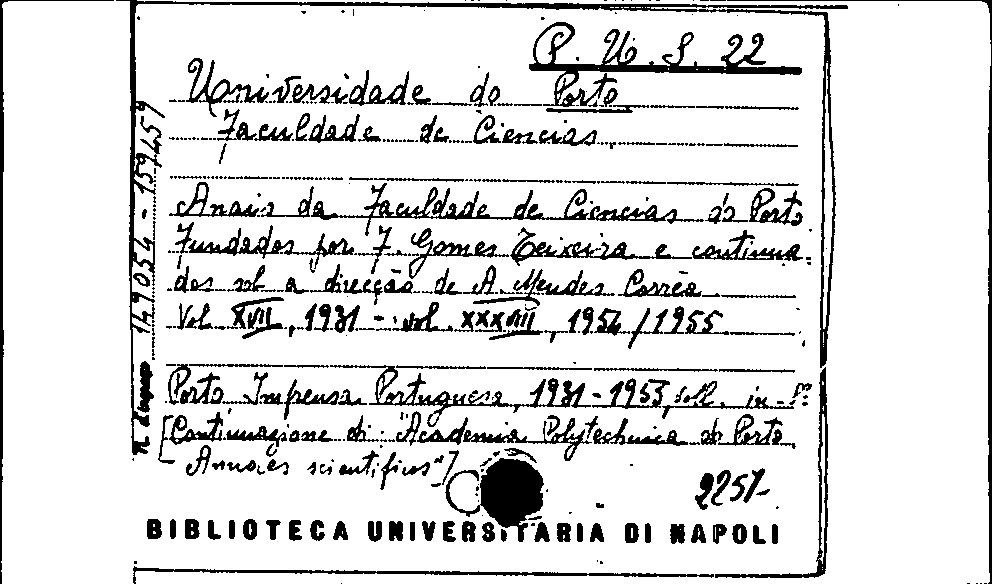 P. U. S. 22
Universidade do Porto
Faculdade de Ciencias.
Anais da Faculdade de Ciencias do Porto
Fundados por F. Gomes Teixeira e continua-
dos sob a direcção de A. Mendes Corrêa
Vol. XVII, 1931 - vol. XXXVIII, 1954/1955.
Porto Imprensa Portuguesa, 1931-1953, voll. in-8º
[Continuazione di "Academia Polytechnica do Porto
- Annaes scientificos"]
2257-
BIBLIOTECA UNIVERSITARIA DI NAPOLI
149054 - 159459